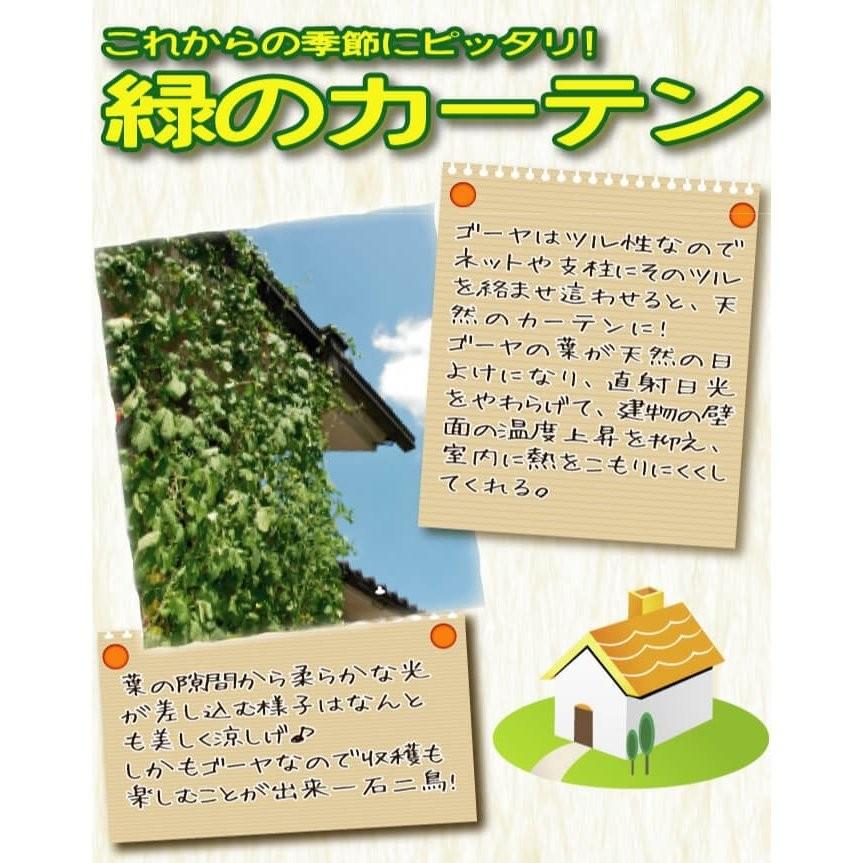 これからの季節にピッタリ!
緑のカーテン
ゴーヤはツル性なので
ネットや支柱にそのツル
を絡ませ這わせると、天
然のカーテンに!
ゴーヤの葉が天然の日
よけになり、直射日光
をやわらげて、建物の壁
面の温度上昇を抑え、
室内に熱をこもりにくくし
てくれる。
葉の隙間から柔らかな光
が差し込む様子はなんと
も美しく涼しげ♪
しかもゴーヤなので収穫も
楽しむことが出来一石二鳥!